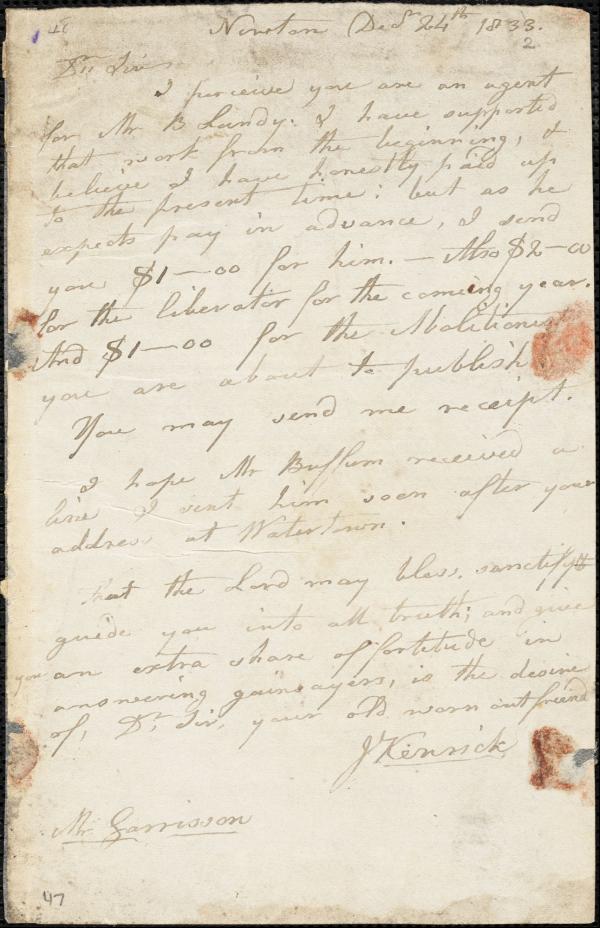 Newton Decr 24th 1833.
2
Dr. Sir
I perceive you are an agent
for Mr B Lundy. I have supported
that work from the beginning, &
believe I have honestly paid up
to the present time; but as he
expects pay in advance, I send
you $1—00 for him. — Also $2—00
for the liberator for the coming year.
And $1—00 for the Abolitionist
you are about to publish
You may send me receipt.
I hope Mr Buffum received a
line I sent him soon after your
address at Watertown.
That the Lord may bless, sanctify &
guide you into all truth; and give
you an extra share of fortitude in
answering gainsayers, is the desire
of, Dr. Sir, your old worn out friend
J Kenrick
Mr. Garrisson
47